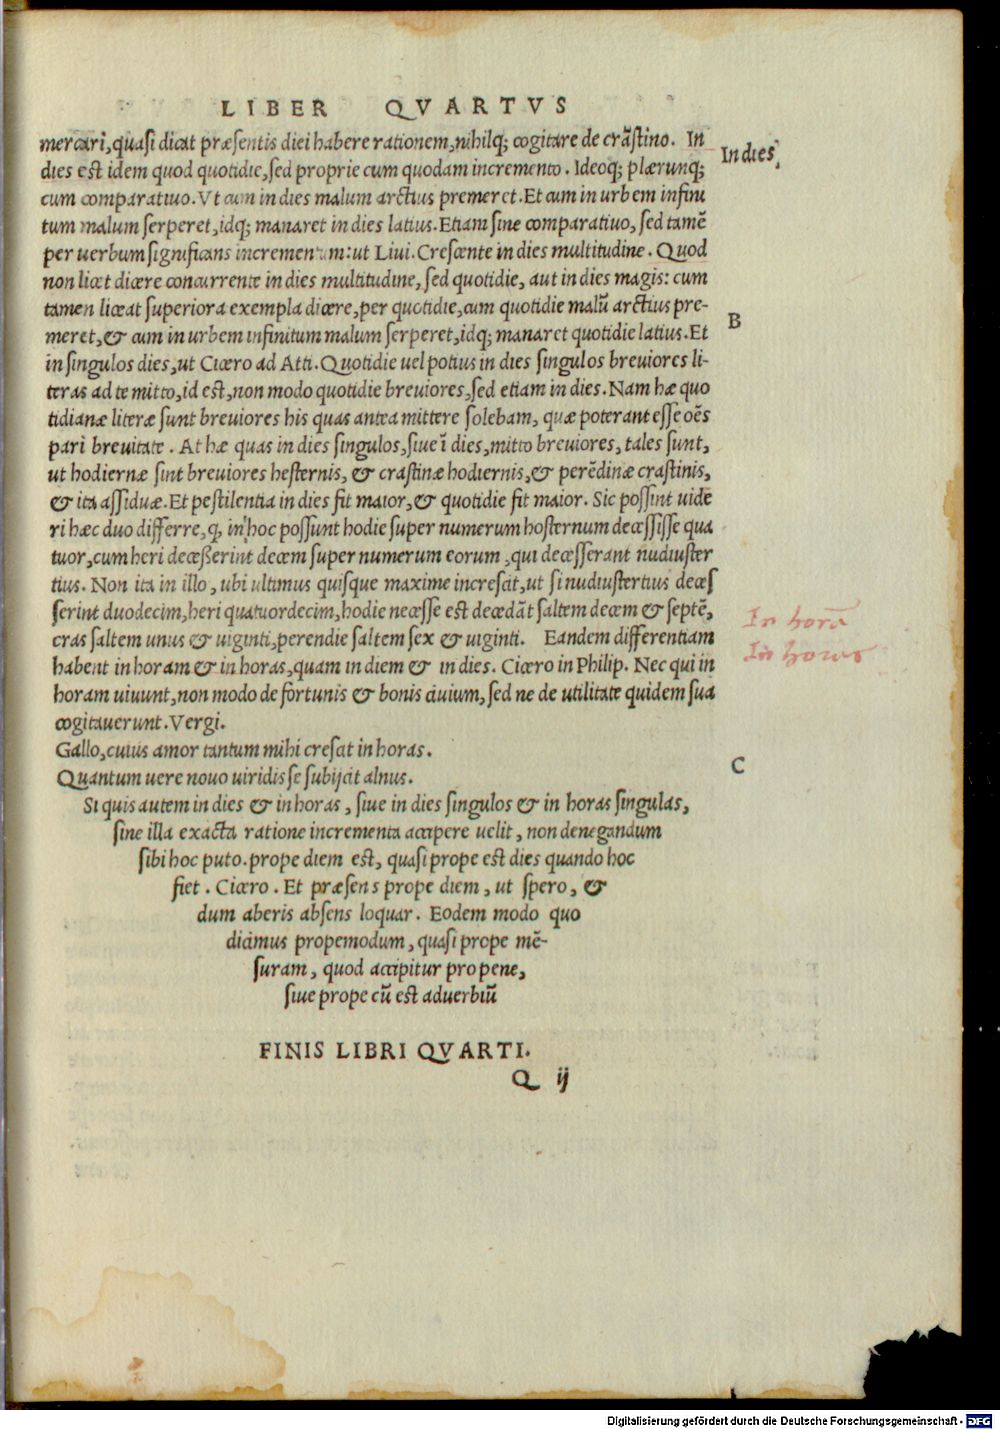 LIBER QVARTVS
mercari, quasi dicat præsentis diei habere rationem, nihilq; cogitare de crãstino. In
In dies
dies est idem quod quotidie, sed proprie cum quodam incremento. Ideoq; plærunq;
cum comparatiuo. Vt cum in dies malum arctius premeret. Et cum in urbem infini
tum malum serperet, idq; manaret in dies latius. Etiam sine comparatiuo, sed tamẽ
per uerbum significans incrementum: ut Liui. Crescente in dies multitudine. Quod
non licet dicere concurrente in dies multitudine, sed quotidie, aut in dies magis: cum
tamen liceat superiora exempla dicere, per quotidie, cum quotidie malũ arctius pre-
B
meret, & cum in urbem infinitum malum serperet, idq; manaret quotidie latius. Et
in singulos dies, ut Cicero ad Atti. Quotidie uel potius in dies singulos breuiores li-
teras ad te mitto, id est, non modo quotidie breuiores, sed etiam in dies. Nam hæ quo
tidianæ literæ sunt breuiores his quas antea mittere solebam, quæ poterant esse oẽs
pari breuitate. At hæ quas in dies singulos, siue ĩ dies, mitto breuiores, tales sunt,
ut hodiernæ sint breuiores hesternis, & crastinæ hodiernis, & perẽdinæ crastinis,
& ita assiduæ. Et pestilentia in dies fit maior, & quotidie fit maior. Sic possint uide
ri hæc duo differre, q, in hoc possunt hodie super numerum hosternum decessisse qua
tuor, cum heri decesserint decem super numerum eorum, qui decesserant nudiuster
tius. Non ita in illo, ubi ultimus quisque maxime increscat, ut si nudiustertius deces
serint duodecim, heri quatuordecim, hodie necesse est decedãt saltem decem & septẽ,
In horã
cras saltem unus & uiginti, perendie saltem sex & uiginti. Eandem differentiam
In horas
habent in horam & in horas, quam in diem & in dies. Cicero in Philip. Nec qui in
horam uiuunt, non modo de fortunis & bonis ciuium, sed ne de utilitate quidem sua
cogitauerunt. Vergi.
Gallo, cuius amor tantum mihi crescat in horas.
Quantum uere nouo uiridis se subijcit alnus.
C
Si quis autem in dies & in horas, siue in dies singulos & in horas singulas,
sine illa exacta ratione incrementa accipere uelit, non denegandum
sibi hoc puto. prope diem est, quasi prope est dies quando hoc
fiet. Cicero. Et præsens prope diem, ut spero, &
dum aberis absens loquar. Eodem modo quo
dicimus propemodum, quasi prope mẽ-
suram, quod accipitur pro pene,
siue prope cũ est aduerbiũ
FINIS LIBRI QVARTI.
Q ij
Digitalisierung gefördert durch die Deutsche Forschungsgemeinschaft - DFG